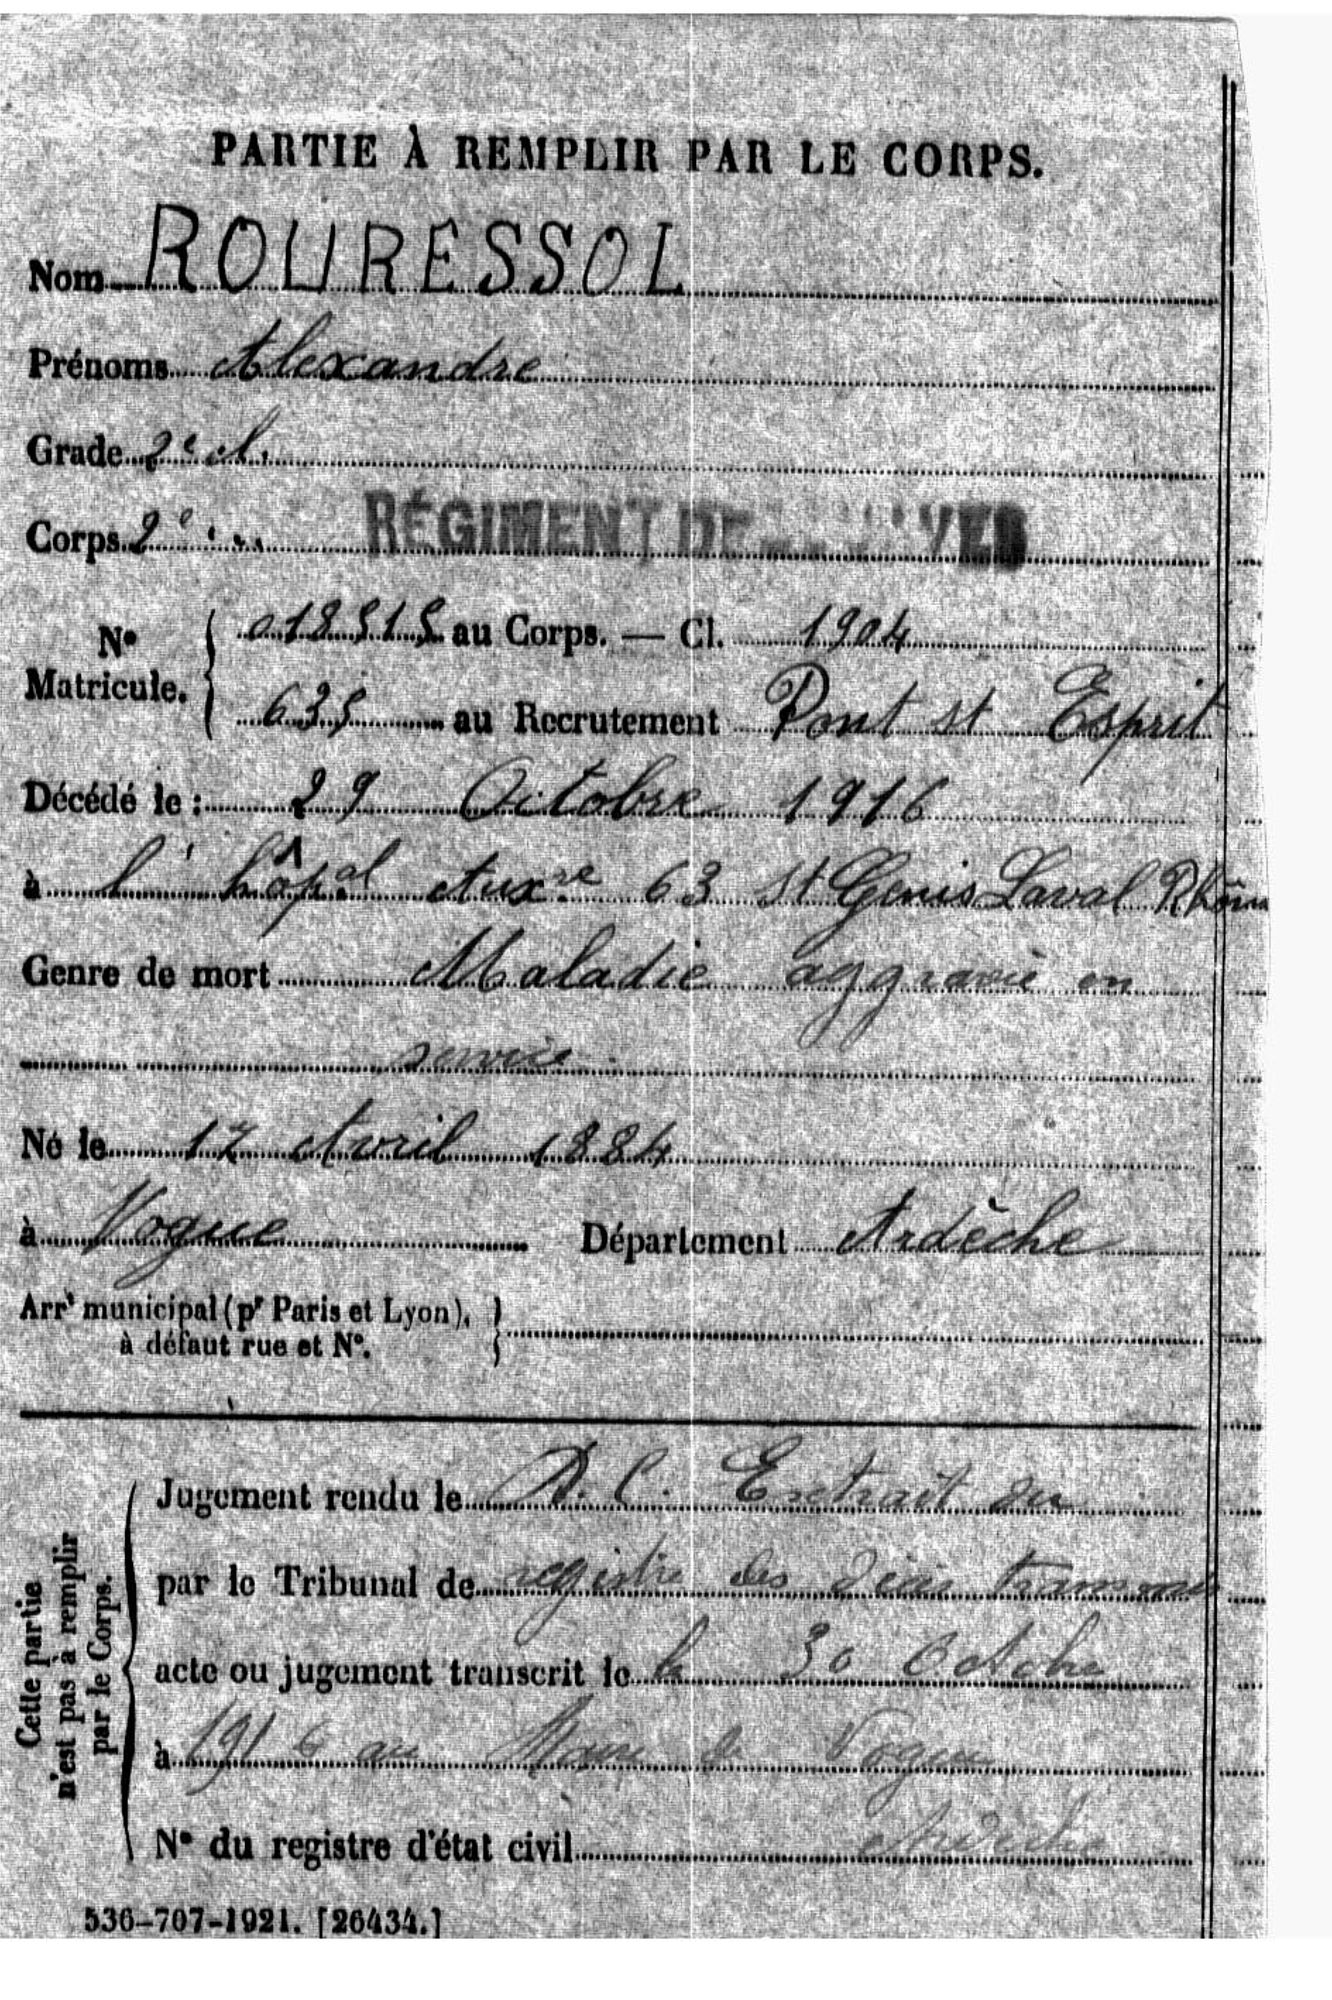 PARTIE À REMPLIR PAR LE CORPS.
Nom ROURESSOL
Prénoms Alexandre
Grade 2e cl.
Corps 2e RÉGIMENT DE
No Matricule. 018515 au Corps. — Cl. 1904
635 au Recrutement Pont St Esprit
Décédé le : 29 Octobre 1916
à l'hôpal Auxre 63 St Genis Laval Rhône
Genre de mort Maladie aggravée en
service
Né le 17 Avril 1884
à Vogue Département Ardèche
Arrt municipal (pr Paris et Lyon),
à défaut rue et No.
Cette partie
n'est pas à remplir
par le Corps.
Jugement rendu le D. C. Extrait du
par le Tribunal de registre des décès transmis
acte ou jugement transcrit le le 30 Octobre
à 1916 au Maire de Vogue
No du registre d'état civil Ardèche
536-707-1921. [26434.]